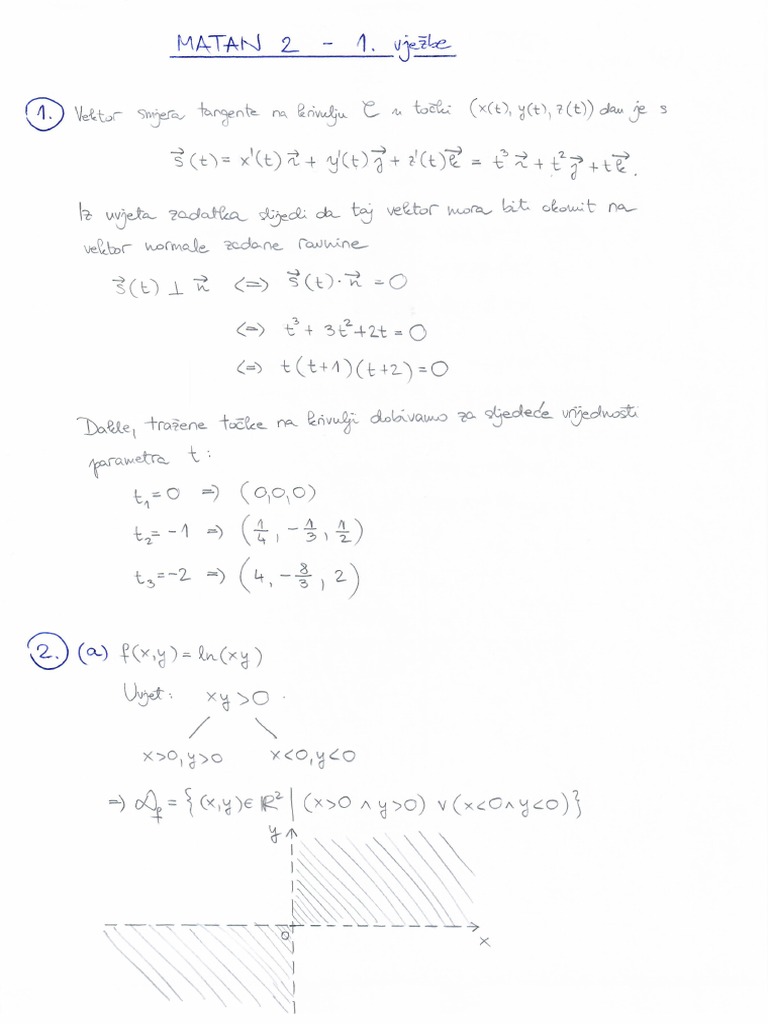 MATAN 2 - 1. vježbe
1. Vektor smjera tangente na krivulju C u točki (x(t), y(t), z(t)) dan je s
s⃗(t) = x'(t) i⃗ + y'(t) j⃗ + z'(t) k⃗ = t³ i⃗ + t² j⃗ + t k⃗.
Iz uvjeta zadatka slijedi da taj vektor mora biti okomit na
vektor normale zadane ravnine
s⃗(t) ⊥ n⃗ <=> s⃗(t) · n⃗ = 0
<=> t³ + 3t² + 2t = 0
<=> t(t+1)(t+2) = 0
Dakle, tražene točke na krivulji dobivamo za sljedeće vrijednosti
parametra t:
t₁ = 0 => (0,0,0)
t₂ = -1 => (1/4, -1/3, 1/2)
t₃ = -2 => (4, -8/3, 2)
2. (a) f(x,y) = ln(xy)
Uvjet: xy > 0
x>0, y>0 x<0, y<0
=> D_f = {(x,y) ∈ ℝ² | (x>0 ∧ y>0) ∨ (x<0 ∧ y<0)}
y
0
x